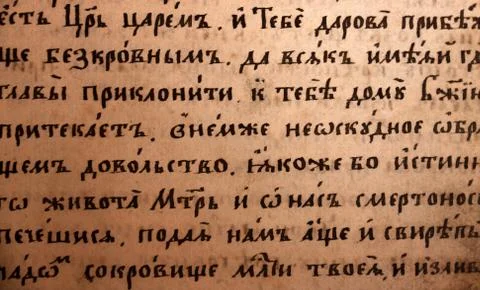 є҆́сть Цр҃ь царе́мъ. и҆ Тебѐ дарова̀ прибѣ́ж
ще безкро́внымъ. да всѧ́къ и҆мѣ́ѧй гдѣ
главы̀ приклони́ти. к̾ тебѣ̀ до́мꙋ бж҃їю
притека́етъ. в̾не́мже неѡскꙋ́дное ѡ҆бра
щемъ дово́льство. ꙗ҆́коже бо и҆́стинн
гѡ живота̀ Мт҃рь и҆ ѡ҆ на́съ смертоно́с
пече́шисѧ, пода́й на́мъ а҆́ще и҆ свирѣ́пы
ча́дѡм̾ сокро́вище мл҃ти твоеѧ̀, и҆ и҆злива